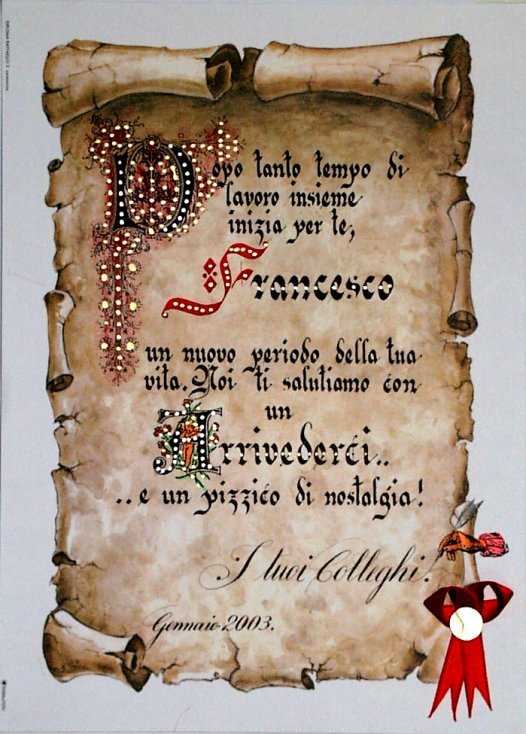 Dopo tanto tempo di
lavoro insieme
inizia per te,
Francesco
un nuovo periodo della tua
vita. Noi ti salutiamo con
un
Arrivederci..
..e un pizzico di nostalgia!
I tuoi Colleghi.
Gennaio 2003.